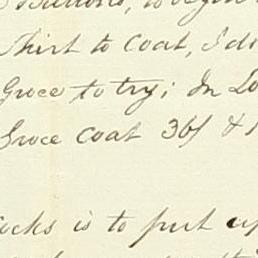 Buttons, to begin
Shirt to Coat, I do
Groce to try; In Lo
Groce Coat 36/ &
ocks is to put up